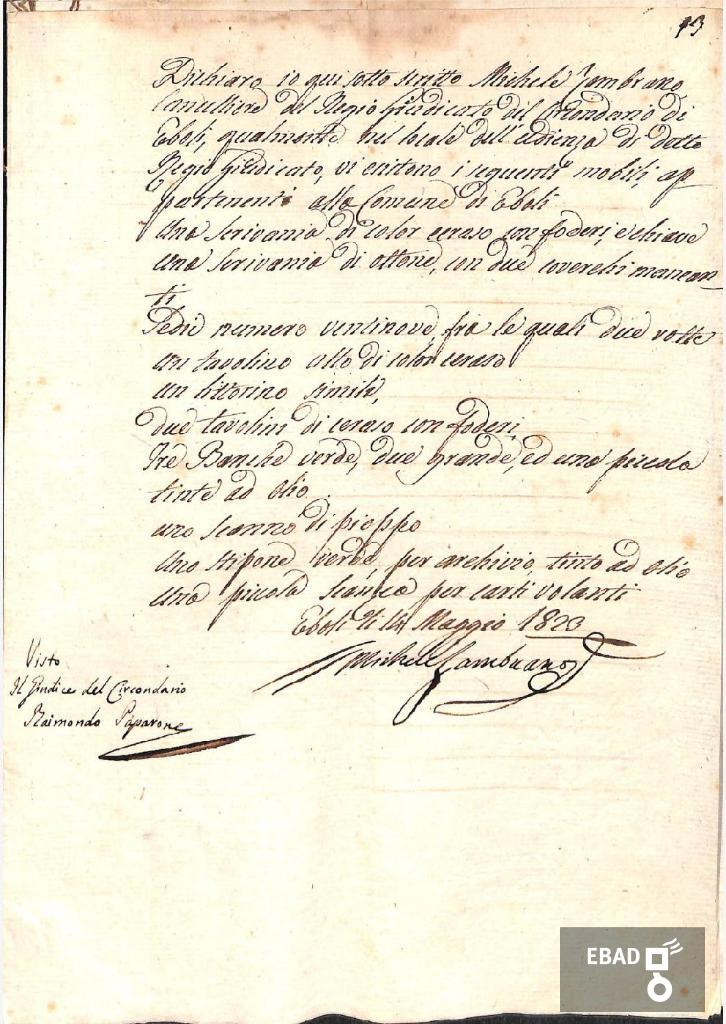 13
Dichiaro io qui sotto scritto Michele Zambrano
Cancelliere del Regio Giudicato del Circondario di
Eboli, qualmente nel locale dell'udienza di detto
Regio Giudicato, vi esistono i seguenti mobili, ap
partinenti alla Comune di Eboli
Una scrivania di color ceraso con foderi, e chiave
una scrivania di ottone, con due coverchi mancan
ti
Sedie numero ventinove fra le quali due rotte
un tavolino alto di color ceraso
un littorino simile,
due tavolini di ceraso con foderi,
Tre Banche verde, due grande, ed una piccola
tinte ad olio
uno scanno di pioppo
Uno stipone verde, per archivio, tinto ad olio
Una piccola scanca per carti volanti
Eboli li 14 Maggio 1823
Michele Zambrano
Visto
Il Giudice del Circondario
Raimondo Paparone
EBAD